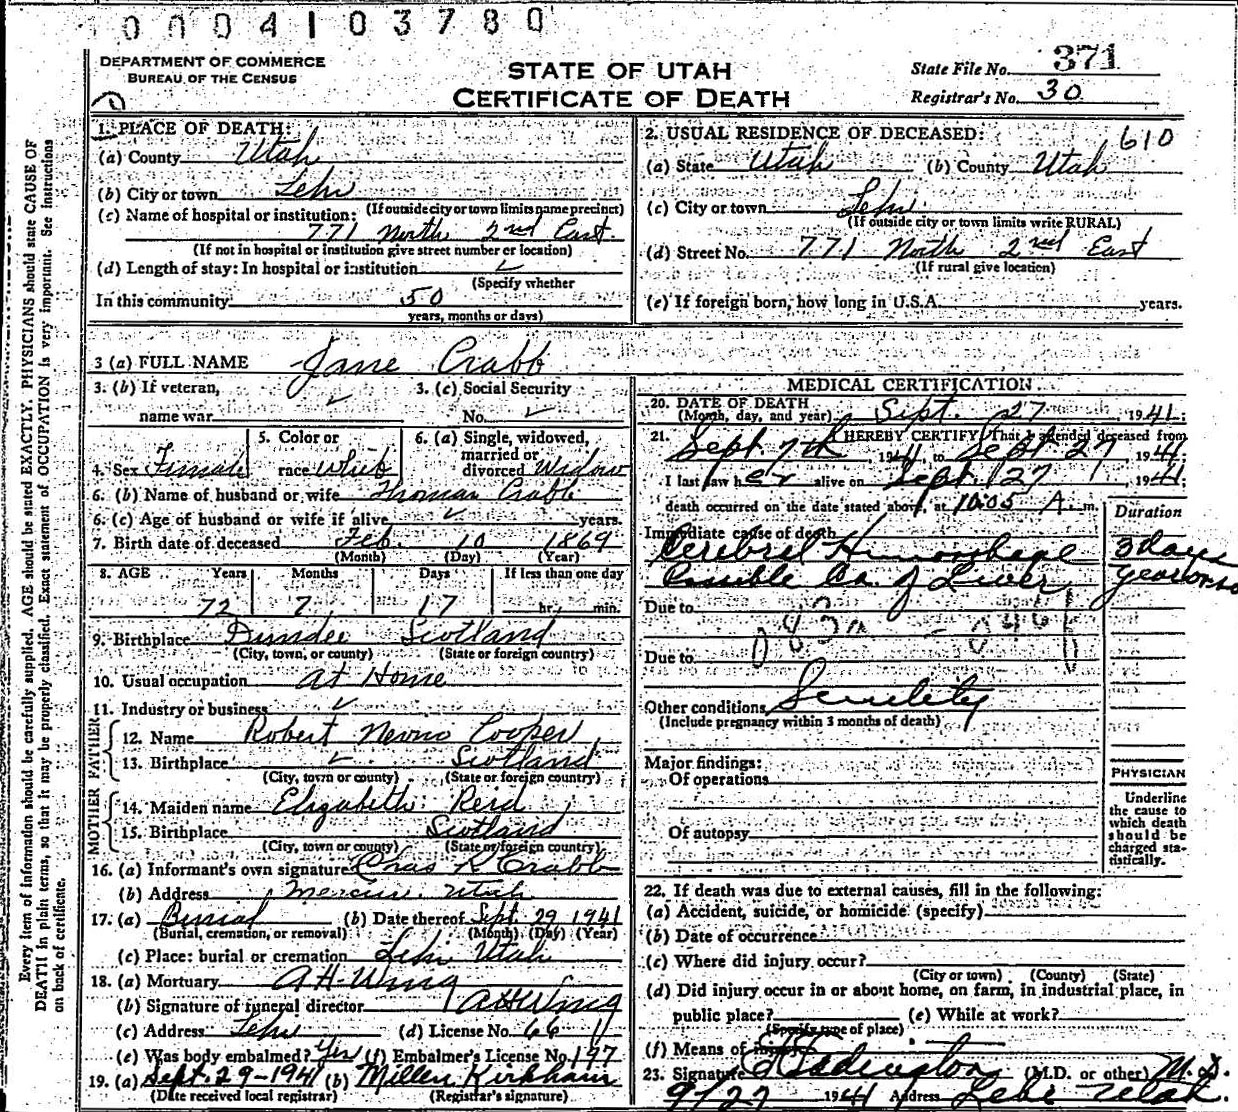 0004103780
DEPARTMENT OF COMMERCE
BUREAU OF THE CENSUS
STATE OF UTAH
CERTIFICATE OF DEATH
State File No. 371
Registrar's No. 30
Every item of information should be carefully supplied. AGE should be stated EXACTLY. PHYSICIANS should state CAUSE OF
DEATH in plain terms, so that it may be properly classified. Exact statement of OCCUPATION is very important. See instructions
on back of certificate.
1. PLACE OF DEATH:
(a) County Utah
(b) City or town Lehi
(If outside city or town limits name precinct)
(c) Name of hospital or institution:
771 North 2nd East
(If not in hospital or institution give street number or location)
(d) Length of stay: In hospital or institution
(Specify whether
In this community 50
years, months or days)
2. USUAL RESIDENCE OF DECEASED: 610
(a) State Utah (b) County Utah
(c) City or town Lehi
(If outside city or town limits write RURAL)
(d) Street No. 771 North 2nd East
(If rural give location)
(e) If foreign born, how long in U.S.A. years.
3 (a) FULL NAME Jane Crabb
3. (b) If veteran,
name war
3. (c) Social Security
No.
4. Sex Female
5. Color or
race White
6. (a) Single, widowed,
married or
divorced Widow
6. (b) Name of husband or wife Thomas Crabb
6. (c) Age of husband or wife if alive years.
7. Birth date of deceased Feb. 10 1869
(Month) (Day) (Year)
8. AGE Years Months Days If less than one day
72 7 17 hr. min.
9. Birthplace Dundee Scotland
(City, town, or county) (State or foreign country)
10. Usual occupation At Home
11. Industry or business
FATHER
12. Name Robert Cooper
13. Birthplace Scotland
(City, town or county) (State or foreign country)
MOTHER
14. Maiden name Elizabeth Reid
15. Birthplace Scotland
(City, town or county) (State or foreign country)
16. (a) Informant's own signature Chas R Crabb
(b) Address Mercur Utah
17. (a) Burial (b) Date thereof Sept. 29 1941
(Burial, cremation, or removal) (Month) (Day) (Year)
(c) Place: burial or cremation Lehi Utah
18. (a) Mortuary A H Wing
(b) Signature of funeral director A H Wing
(c) Address Lehi (d) License No. 66
(e) Was body embalmed? Yes (f) Embalmer's License No. 177
19. (a) Sept. 29-1941 (b) Millen Kirkham
(Date received local registrar) (Registrar's signature)
MEDICAL CERTIFICATION
20. DATE OF DEATH
(Month, day, and year) Sept. 27 1941
21. I HEREBY CERTIFY That I attended deceased from
Sept 7th, 1941 to Sept 27 1941
I last saw her alive on Sept. 27, 1941
death occurred on the date stated above, at 10:05 A. m.
Duration
Immediate cause of death
Cerebral Hemorrhage 3 days
Possible Ca. of Liver year or so
Due to
Due to
Other conditions Senility
(Include pregnancy within 3 months of death)
Major findings:
Of operations
Of autopsy
PHYSICIAN
Underline
the cause to
which death
should be
charged sta-
tistically.
22. If death was due to external causes, fill in the following:
(a) Accident, suicide, or homicide (specify)
(b) Date of occurrence
(c) Where did injury occur?
(City or town) (County) (State)
(d) Did injury occur in or about home, on farm, in industrial place, in
public place? (e) While at work?
(Specify type of place)
(f) Means of injury
23. Signature Eddington (M.D. or other) M.D.
9/27 1941 Address Lehi Utah.